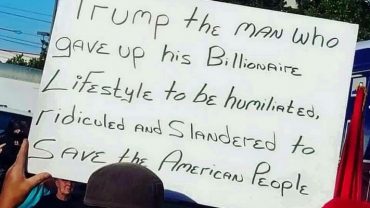 Trump the man who
gave up his Billionaire
Lifestyle to be humiliated,
ridiculed and Slandered to
Save the American People